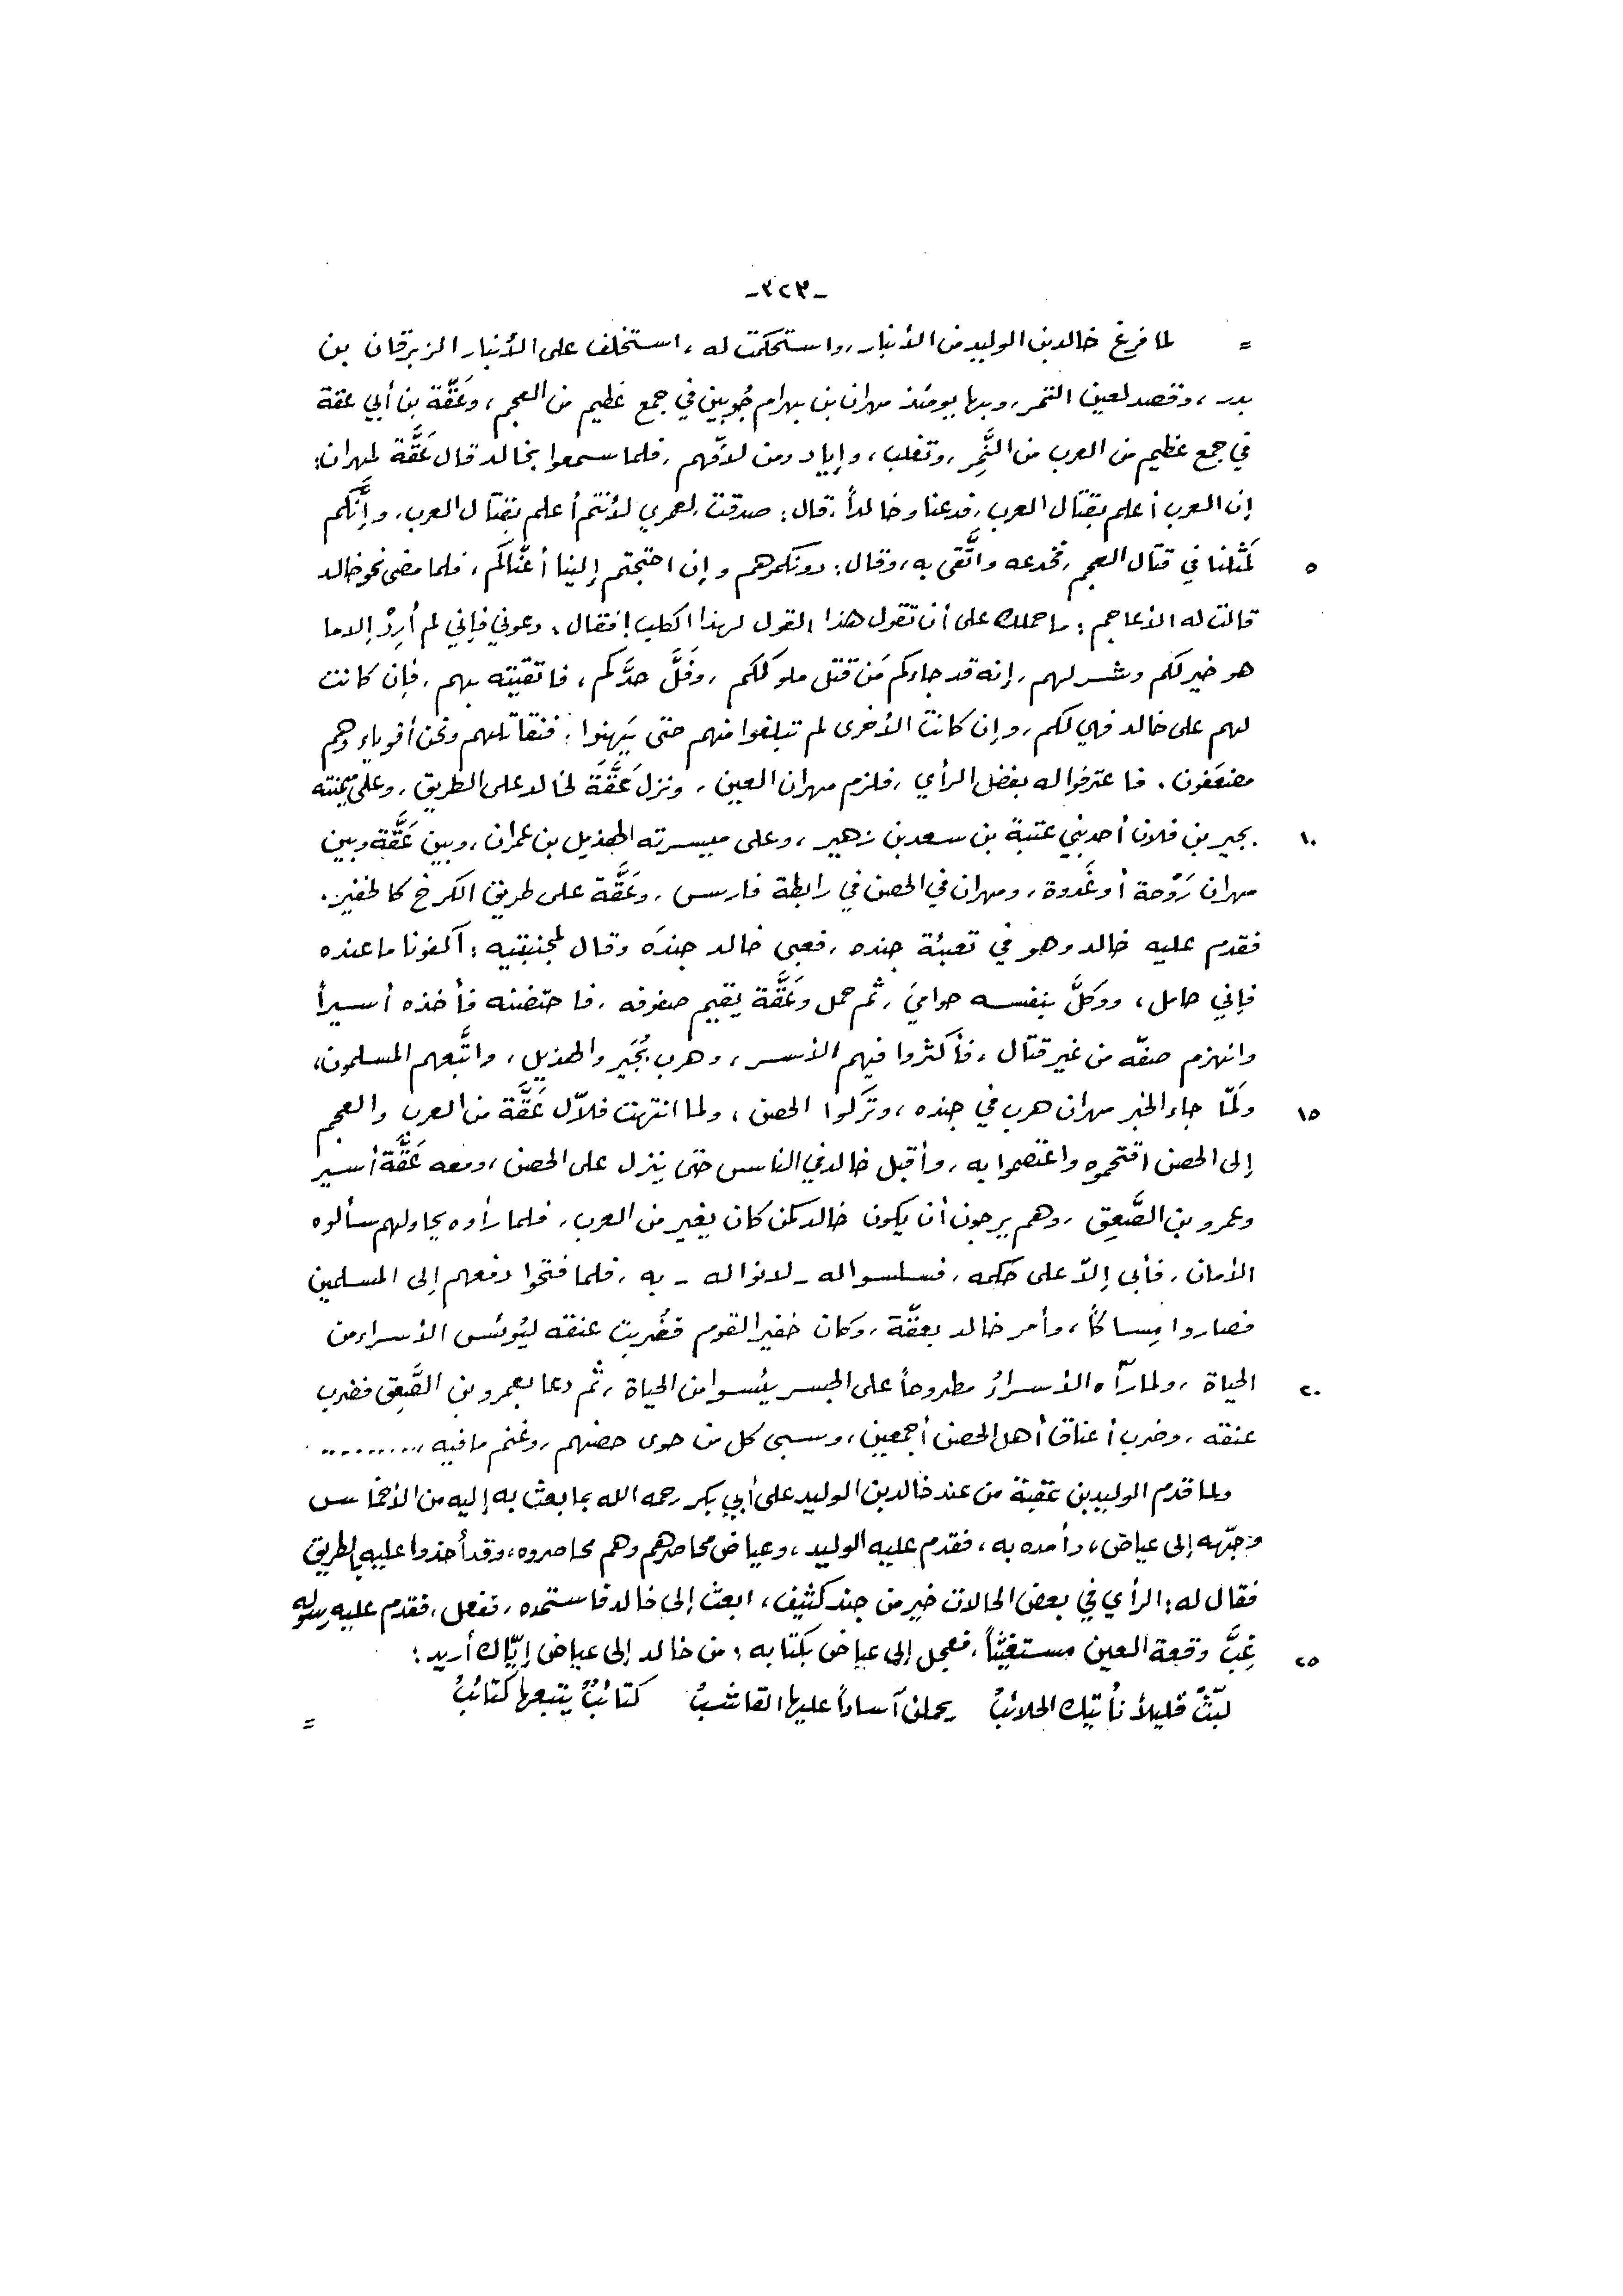 -٣٢٣-
= لما فرغ خالد بن الوليد من الأنبار، واستحكمت له، استخلف على الأنبار الزبرقان بن
بدر، وقصد لعين التمر، وبها يومئذ مهران بن بهرام جُوبين في جمع عظيم من العجم، وعَقَّة بن أبي عقة
في جمع عظيم من العرب من النَّمِر، وتغلب، وإياد ومن لافّهم، فلما سمعوا بخالد قال عَقَّة لمهران:
إن العرب أعلم بقتال العرب، فدعنا وخالداً، قال: صدقت لعمري لأنتم أعلم بقتال العرب، وإنَّكم
٥ لمَثلنا في قتال العجم، فخدعه واتَّقى به، وقال: دونكموهم وإن احتجتم إلينا أعنّاكم، فلما مضى نحو خالد
قالت له الأعاجم: ما حملك على أن تقول هذا القول لهذا الكلب! فقال: دعوني فإني لم أُرِدْ إلا ما
هو خير لكم وشر لهم، إنه قد جاءكم مَن قتل ملوككم، وفَلَّ حدَّكم، فاتقيته بهم، فإن كانت
لهم على خالد فهي لكم، وإن كانت الأخرى لم تبلغوا منهم حتى يَهِنوا، فنقاتلهم ونحن أقوياء وهم
مضعَفون. فاعترفوا له بفضل الرأي، فلزم مهران العين، ونزل عَقَّةُ لخالد على الطريق، وعلى ميمنته
١٠ بجير بن فلان أحد بني عتبة بن سعد بن زهير، وعلى ميسرته الهذيل بن عمران، وبين عَقَّة وبين
مهران رَوْحة أو غَدوة، ومهران في الحصن في رابطة فارس، وعَقَّة على طريق الكرخ كالخفير.
فقدم عليه خالد وهو في تعبئة جنده، فعبى خالد جندَه وقال لمجنبتيه: اكفونا ما عنده
فإني حامل، ووكَلَّ بنفسه حواميَ، ثم حمل وعَقَّة يقيم صفوفه، فاحتضنه فأخذه أسيراً
وانهزم صفّه من غير قتال، فأكثروا فيهم الأسر، وهرب بُجَير والهذيل، واتَّبعهم المسلمون،
١٥ ولَمّا جاء الخبر مهران هرب في جنده، وتركوا الحصن، ولما انتهت فلاّل عَقَّة من العرب والعجم
إلى الحصن اقتحموه واعتصموا به، وأقبل خالد في الناس حتى ينزل على الحصن، ومعه عَقَّة أسير
وعمرو بن الصَّعِق، وهم يرجون أن يكون خالد كمن كان يغير من العرب، فلما رأوه يحاولهم سألوه
الأمان، فأبى إلاّ على حكمه، فسلسوا له - لانوا له - به، فلما فتحوا دفعهم إلى المسلمين
فصاروا مِساكاً، وأمر خالد بعقّة، وكان خفير القوم فضُربت عنقه ليُوئس الأسراء من
٢٠ الحياة، ولما رآه الأسراءُ مطروحاً على الجسر يئسوا من الحياة، ثم دعا بعمرو بن الصَّعِق فضرب
عنقه، وضرب أعناق أهل الحصن أجمعين، وسبى كل من حوى حصنهم، وغنم ما فيه ..........
ولما قدم الوليد بن عقبة من عند خالد بن الوليد على أبي بكر رحمه الله بما بعث به إليه من الأخماس
وجّهه إلى عياض، وأمده به، فقدم عليه الوليد، وعياض محاصرهم وهم محاصروه، وقد أخذوا عليه بالطريق
فقال له: الرأي في بعض الحالات خير من جند كثيف، ابعث إلى خالد فاستمده، ففعل، فقدم عليه رسوله
٢٥ غِبَّ وقعة العين مستغيثاً، فعجل إلى عياض بكتابه: من خالد إلى عياض إيّاك أريد:
لَبِّثْ قليلاً تأتيك الحلائبُ يحملن آساداً عليها القاشبُ كتائبٌ يتبعها كتائبُ
=